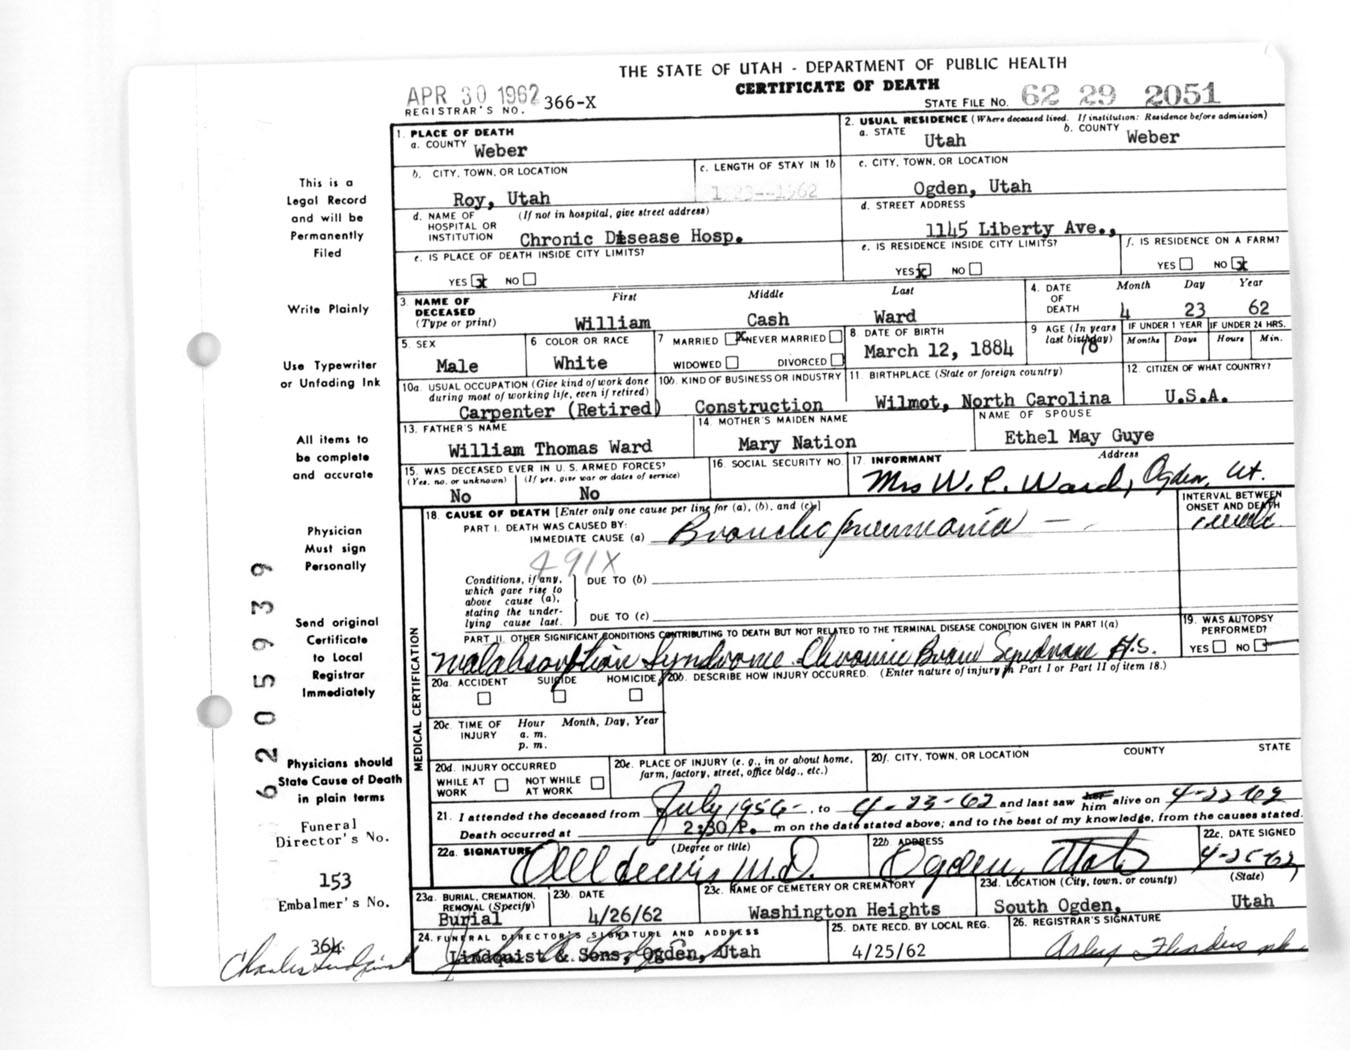 THE STATE OF UTAH - DEPARTMENT OF PUBLIC HEALTH
CERTIFICATE OF DEATH
APR 30 1962
REGISTRAR'S NO. 366-X
STATE FILE NO. 62 29 2051
1. PLACE OF DEATH
a. COUNTY Weber
2. USUAL RESIDENCE (Where deceased lived. If institution: Residence before admission)
a. STATE Utah b. COUNTY Weber
b. CITY, TOWN, OR LOCATION Roy, Utah
c. LENGTH OF STAY IN 1b
c. CITY, TOWN, OR LOCATION Ogden, Utah
d. NAME OF HOSPITAL OR INSTITUTION (If not in hospital, give street address) Chronic Disease Hosp.
d. STREET ADDRESS 1145 Liberty Ave.,
e. IS PLACE OF DEATH INSIDE CITY LIMITS? YES x NO
e. IS RESIDENCE INSIDE CITY LIMITS? YES x NO
f. IS RESIDENCE ON A FARM? YES NO x
3. NAME OF DECEASED (Type or print) First Middle Last
William Cash Ward
4. DATE OF DEATH Month Day Year
4 23 62
5. SEX Male
6 COLOR OR RACE White
7 MARRIED x NEVER MARRIED WIDOWED DIVORCED
8 DATE OF BIRTH March 12, 1884
9 AGE (In years last birthday) 78
IF UNDER 1 YEAR Months Days
IF UNDER 24 HRS. Hours Min.
10a. USUAL OCCUPATION (Give kind of work done during most of working life, even if retired) Carpenter (Retired)
10b. KIND OF BUSINESS OR INDUSTRY Construction
11. BIRTHPLACE (State or foreign country) Wilmot, North Carolina
12. CITIZEN OF WHAT COUNTRY? U.S.A.
13. FATHER'S NAME William Thomas Ward
14. MOTHER'S MAIDEN NAME Mary Nation
NAME OF SPOUSE Ethel May Guye
15. WAS DECEASED EVER IN U.S. ARMED FORCES?
(Yes, no. or unknown) No
(If yes, give war or dates of service) No
16. SOCIAL SECURITY NO.
17 INFORMANT Address
Mrs W. C. Ward, Ogden, Ut.
18. CAUSE OF DEATH [Enter only one cause per line for (a), (b), and (c)]
INTERVAL BETWEEN ONSET AND DEATH
PART I. DEATH WAS CAUSED BY:
IMMEDIATE CAUSE (a) Broncho pneumonia
1 week
491X
Conditions, if any, which gave rise to above cause (a), stating the underlying cause last.
DUE TO (b)
DUE TO (c)
PART II. OTHER SIGNIFICANT CONDITIONS CONTRIBUTING TO DEATH BUT NOT RELATED TO THE TERMINAL DISEASE CONDITION GIVEN IN PART I(a)
Malabsorption Syndrome. Chronic Brain Syndrome A.S.
19. WAS AUTOPSY PERFORMED? YES NO
MEDICAL CERTIFICATION
20a. ACCIDENT SUICIDE HOMICIDE
20b. DESCRIBE HOW INJURY OCCURRED. (Enter nature of injury in Part I or Part II of item 18.)
20c. TIME OF INJURY Hour a. m. p. m. Month, Day, Year
20d. INJURY OCCURRED
WHILE AT WORK NOT WHILE AT WORK
20e. PLACE OF INJURY (e. g., in or about home, farm, factory, street, office bldg., etc.)
20f. CITY, TOWN, OR LOCATION COUNTY STATE
21. I attended the deceased from July 1956, to 4-23-62 and last saw her him alive on 4-22-62
Death occurred at 2:30 P. m on the date stated above; and to the best of my knowledge, from the causes stated.
22a. SIGNATURE (Degree or title) M.D.
22b. ADDRESS Ogden, Utah
22c. DATE SIGNED 4-25-62
23a. BURIAL, CREMATION, REMOVAL (Specify) Burial
23b. DATE 4/26/62
23c. NAME OF CEMETERY OR CREMATORY Washington Heights
23d. LOCATION (City, town, or county) (State)
South Ogden, Utah
24. FUNERAL DIRECTOR'S SIGNATURE AND ADDRESS
Lindquist & Sons, Ogden, Utah
25. DATE RECD. BY LOCAL REG. 4/25/62
26. REGISTRAR'S SIGNATURE
This is a
Legal Record
and will be
Permanently
Filed
Write Plainly
Use Typewriter
or Unfading Ink
All items to
be complete
and accurate
Physician
Must sign
Personally
Send original
Certificate
to Local
Registrar
Immediately
Physicians should
State Cause of Death
in plain terms
Funeral
Director's No.
153
Embalmer's No.
364
Charles Lindquist
6205939